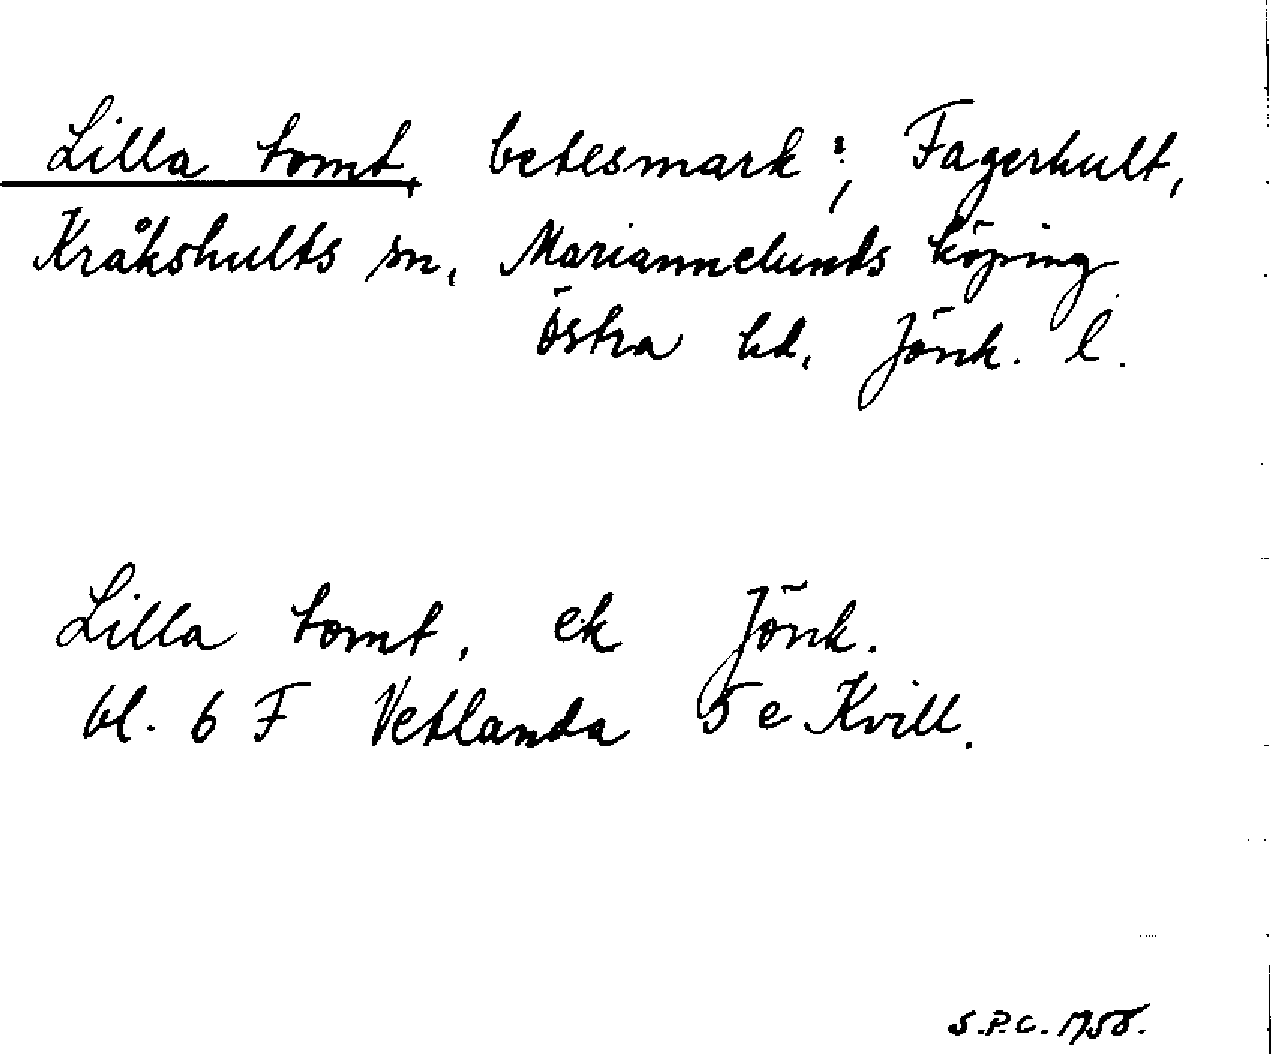 Lilla tomt, betesmark?, Fagerhult,
Kråkshults sn, Mariannelunds köping
Östra hd, Jönk. l.
Lilla tomt, ek Jönk.
bl. 6 F Vetlanda 5 e Kvill.
S.P.C. 1958.